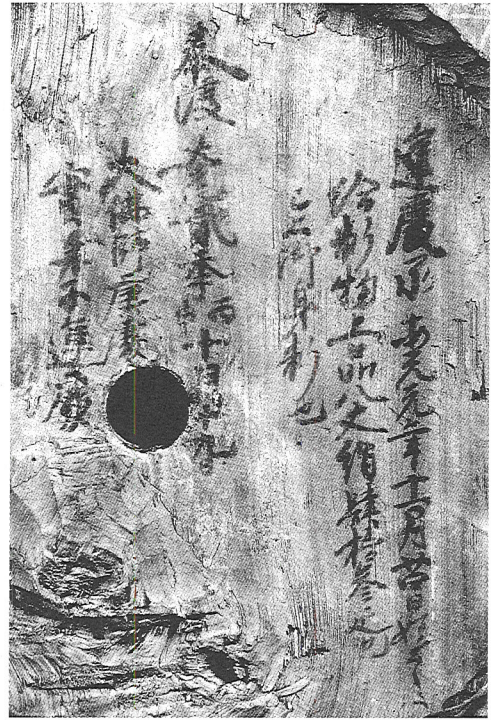 運慶承安元元年十一月廿四日始之
給料物上品八丈絹肆拾参疋也
已上御身料也
奉渡安元貳年丙申十月十九日
大佛師康慶
實弟子運慶